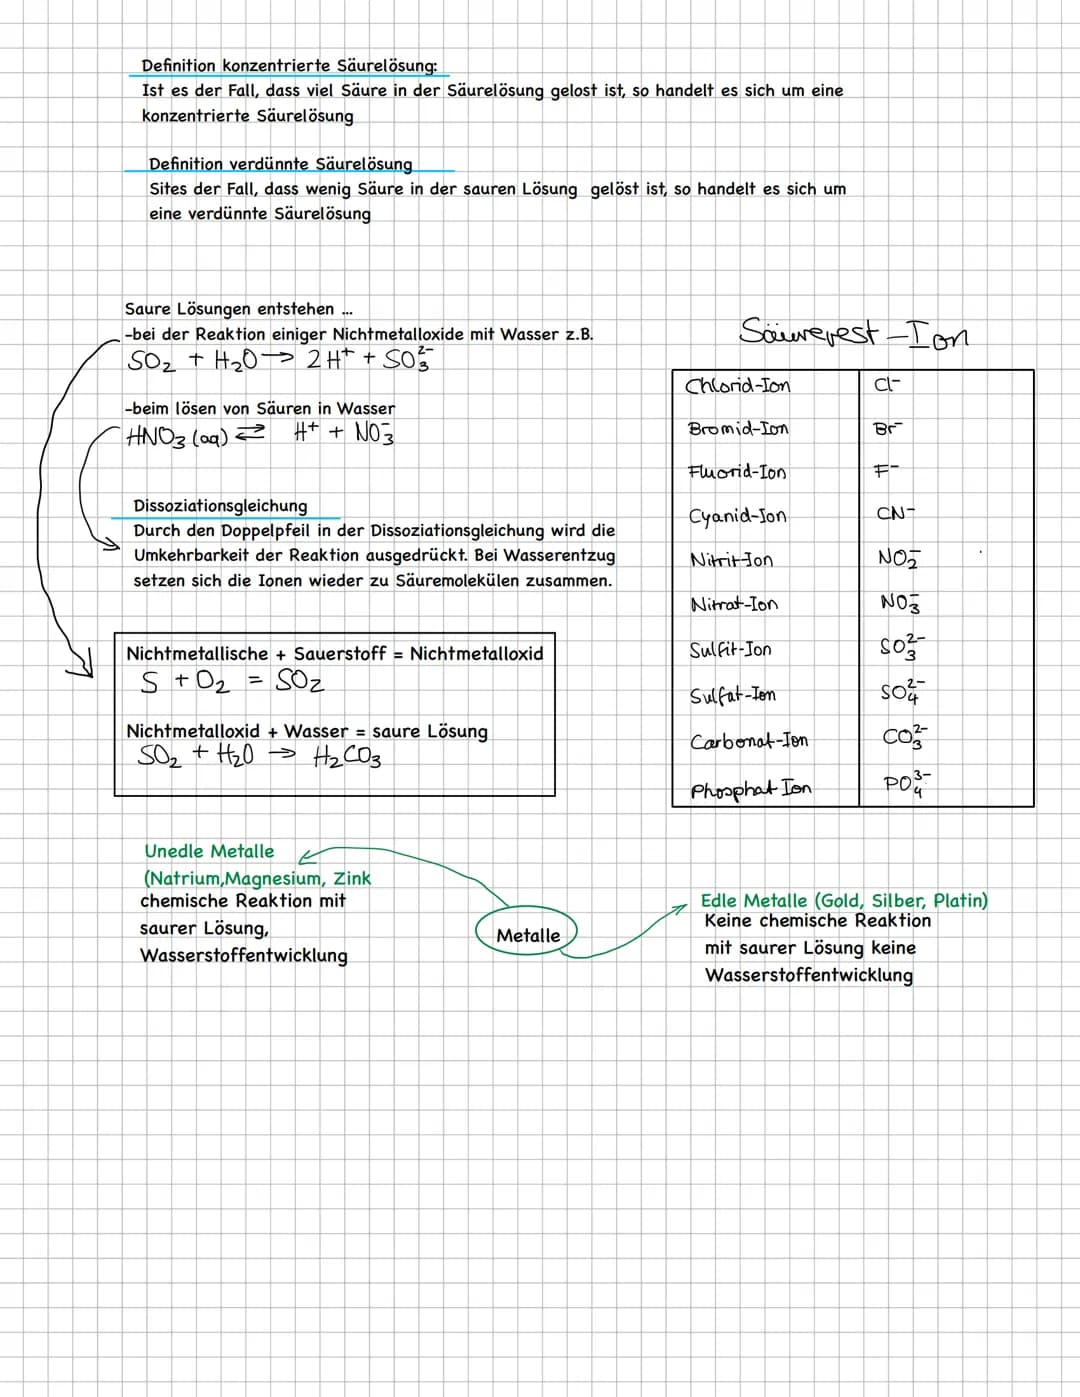 Definition konzentrierte Säurelösung:
Ist es der Fall, dass viel Säure in der Säurelösung gelost ist, so handelt es sich um eine
konzentrierte Säurelösung
Definition verdünnte Säurelösung
Sites der Fall, dass wenig Säure in der sauren Lösung gelöst ist, so handelt es sich um
eine verdünnte Säurelösung
Saure Lösungen entstehen ...
-bei der Reaktion einiger Nichtmetalloxide mit Wasser z.B.
SO₂ + H₂O → 2H⁺ + SO₃²⁻
-beim lösen von Säuren in Wasser
HNO₃ (aq) ⇄ H⁺ + NO₃⁻
Dissoziationsgleichung
Durch den Doppelpfeil in der Dissoziationsgleichung wird die
Umkehrbarkeit der Reaktion ausgedrückt. Bei Wasserentzug
setzen sich die Ionen wieder zu Säuremolekülen zusammen.
Nichtmetallische + Sauerstoff = Nichtmetalloxid
S + O₂ = SO₂
Nichtmetalloxid + Wasser = saure Lösung
SO₂ + H₂O → H₂CO₃
Säurerest-Ion
Chlorid-Ion Cl⁻
Bromid-Ion Br⁻
Fluorid-Ion F⁻
Cyanid-Ion CN⁻
Nitrit-Ion NO₂⁻
Nitrat-Ion NO₃⁻
Sulfit-Ion SO₃²⁻
Sulfat-Ion SO₄²⁻
Carbonat-Ion CO₃²⁻
Phosphat Ion PO₄³⁻
Unedle Metalle
(Natrium,Magnesium, Zink
chemische Reaktion mit
saurer Lösung,
Wasserstoffentwicklung
Metalle
Edle Metalle (Gold, Silber, Platin)
Keine chemische Reaktion
mit saurer Lösung keine
Wasserstoffentwicklung